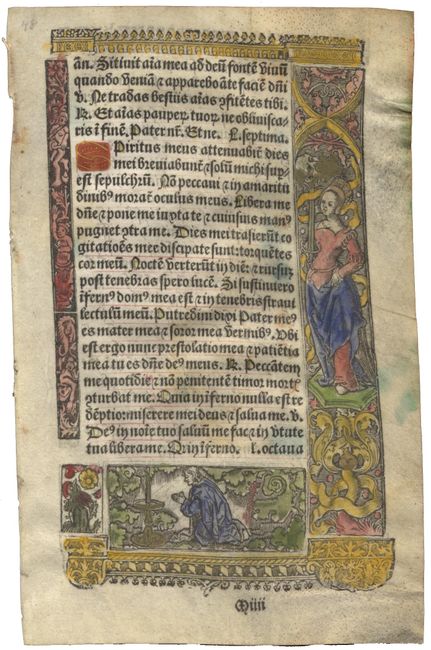 48
ān. Sitivit aīa mea ad deū fontē vivū
quando veniā ⁊ apparebo āte faciē dn̄i
v. Ne tradas bestiis aīas ɔfitētes tibi.
R. Et aīas pauperū tuorꝫ ne obliviscaris
ris ī finē. Pater nr̄. Et ne. L. septima.
Spiritus meus attenuabit̄ dies
mei breviabunt̄ ⁊ solū michi sup
est sepulchrū. Nō peccavi ⁊ in amaritu
dinibꝰ morat̄ oculus meus. Libera me
dn̄e ⁊ pone me iuxta te ⁊ cuiusvis manꝰ
pugnet ɔtra me. Dies mei trāsierūt co
gitatiōes mee dissipate sunt: torquētes
cor meū. Noctē verterūt in diē: ⁊ rursuꝫ
post tenebras spero lucē. Si sustinuero
īfernꝰ domꝰ mea est ⁊ in tenebris stravi
lectulum meū. Putredini dixi Pater meꝰ
es mater mea ⁊ soror mea vermibꝰ. Vbi
est ergo nunc prestolatio mea ⁊ patiētia
mea tu es dn̄e deꝰ meus. R. Peccātem
me quotidie ⁊ nō penitentē timor mort̄
ɔturbat me. Quia in inferno nulla est re
dēptio: miserere mei deus ⁊ salua me. v.
Deꝰ in noīe tuo saluū me fac ⁊ in v̄tute
tua libera me. Qr̄ in īferno. l. octava
Miiii